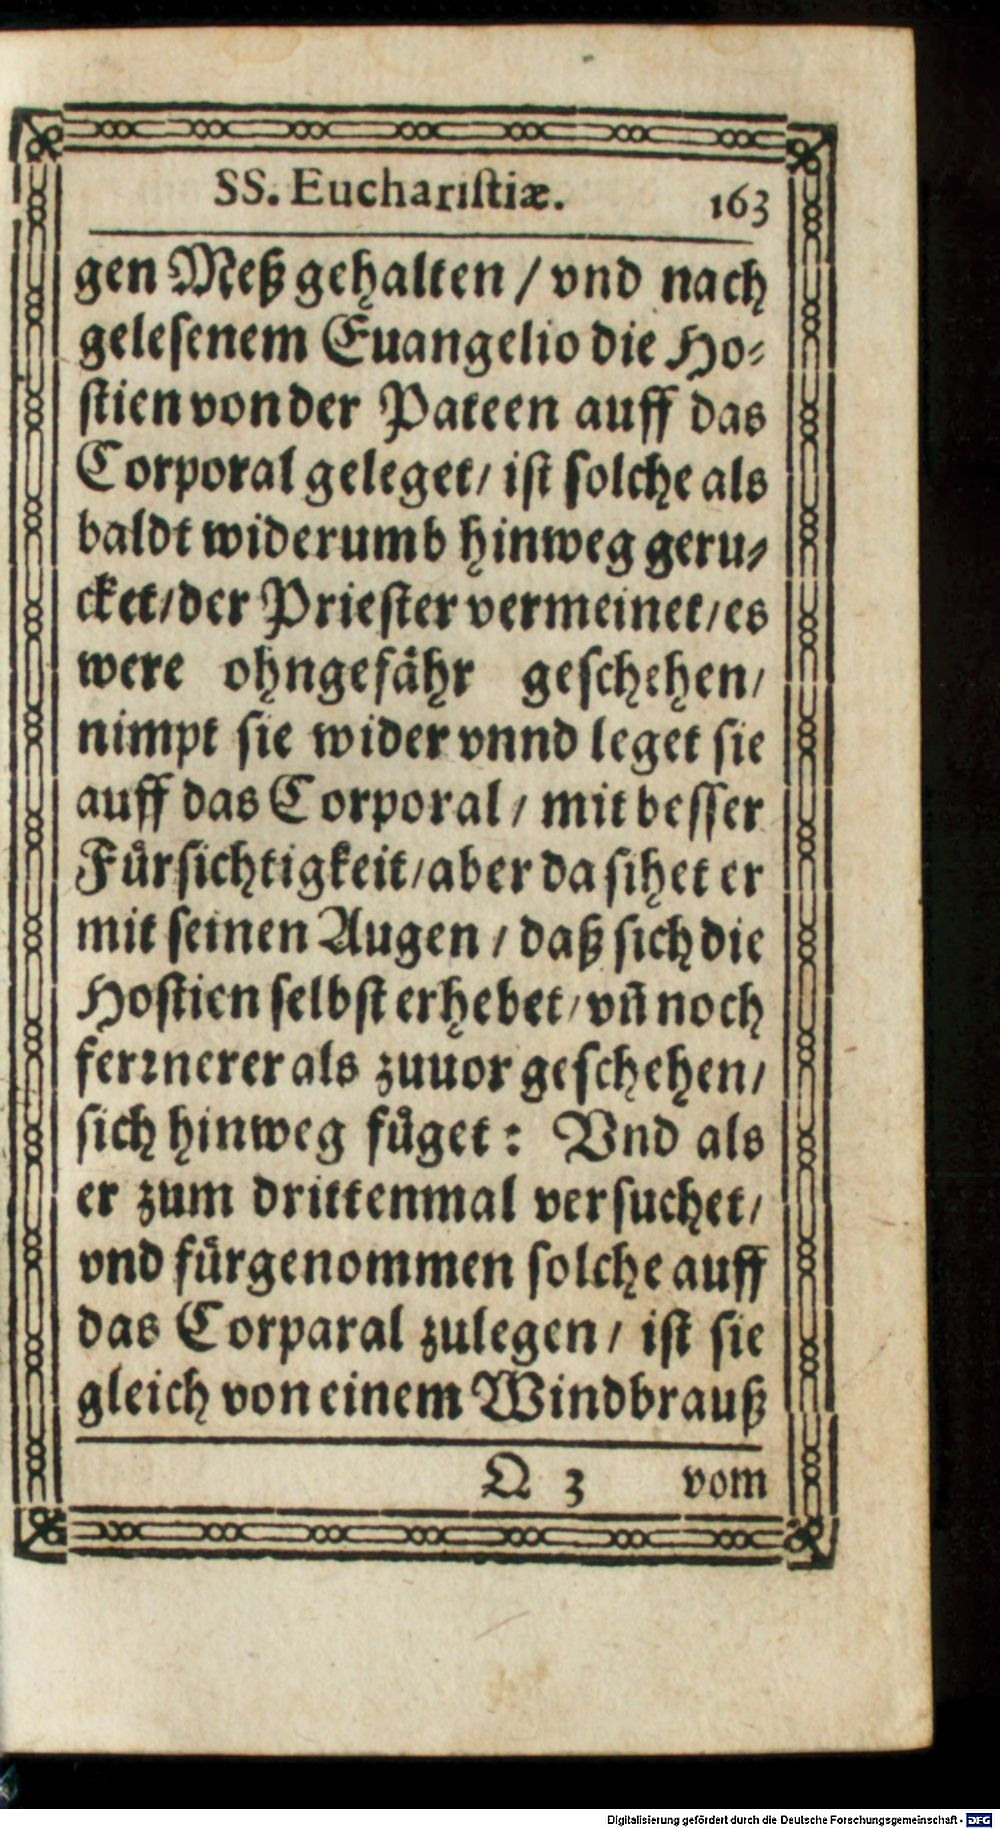 SS. Euchariſtiæ. 163
gen Meß gehalten / vnd nach
geleſenem Euangelio die Ho⸗
ſtien von der Pateen auff das
Corporal geleget / iſt ſolche als
baldt widerumb hinweg geru⸗
cket / der Prieſter vermeinet / es
were ohngefaͤhr geſchehen /
nimpt ſie wider vnnd leget ſie
auff das Corporal / mit beſſer
Fuͤrſichtigkeit / aber da ſihet er
mit ſeinen Augen / daß ſich die
Hoſtien ſelbſt erhebet / vñ noch
ferꝛnerer als zuuor geſchehen /
ſich hinweg fuͤget : Vnd als
er zum drittenmal verſuchet /
vnd fuͤrgenommen ſolche auff
das Corparal zulegen / iſt ſie
gleich von einem Windbrauß
Q 3 vom
Digitalisierung gefördert durch die Deutsche Forschungsgemeinschaft - DFG